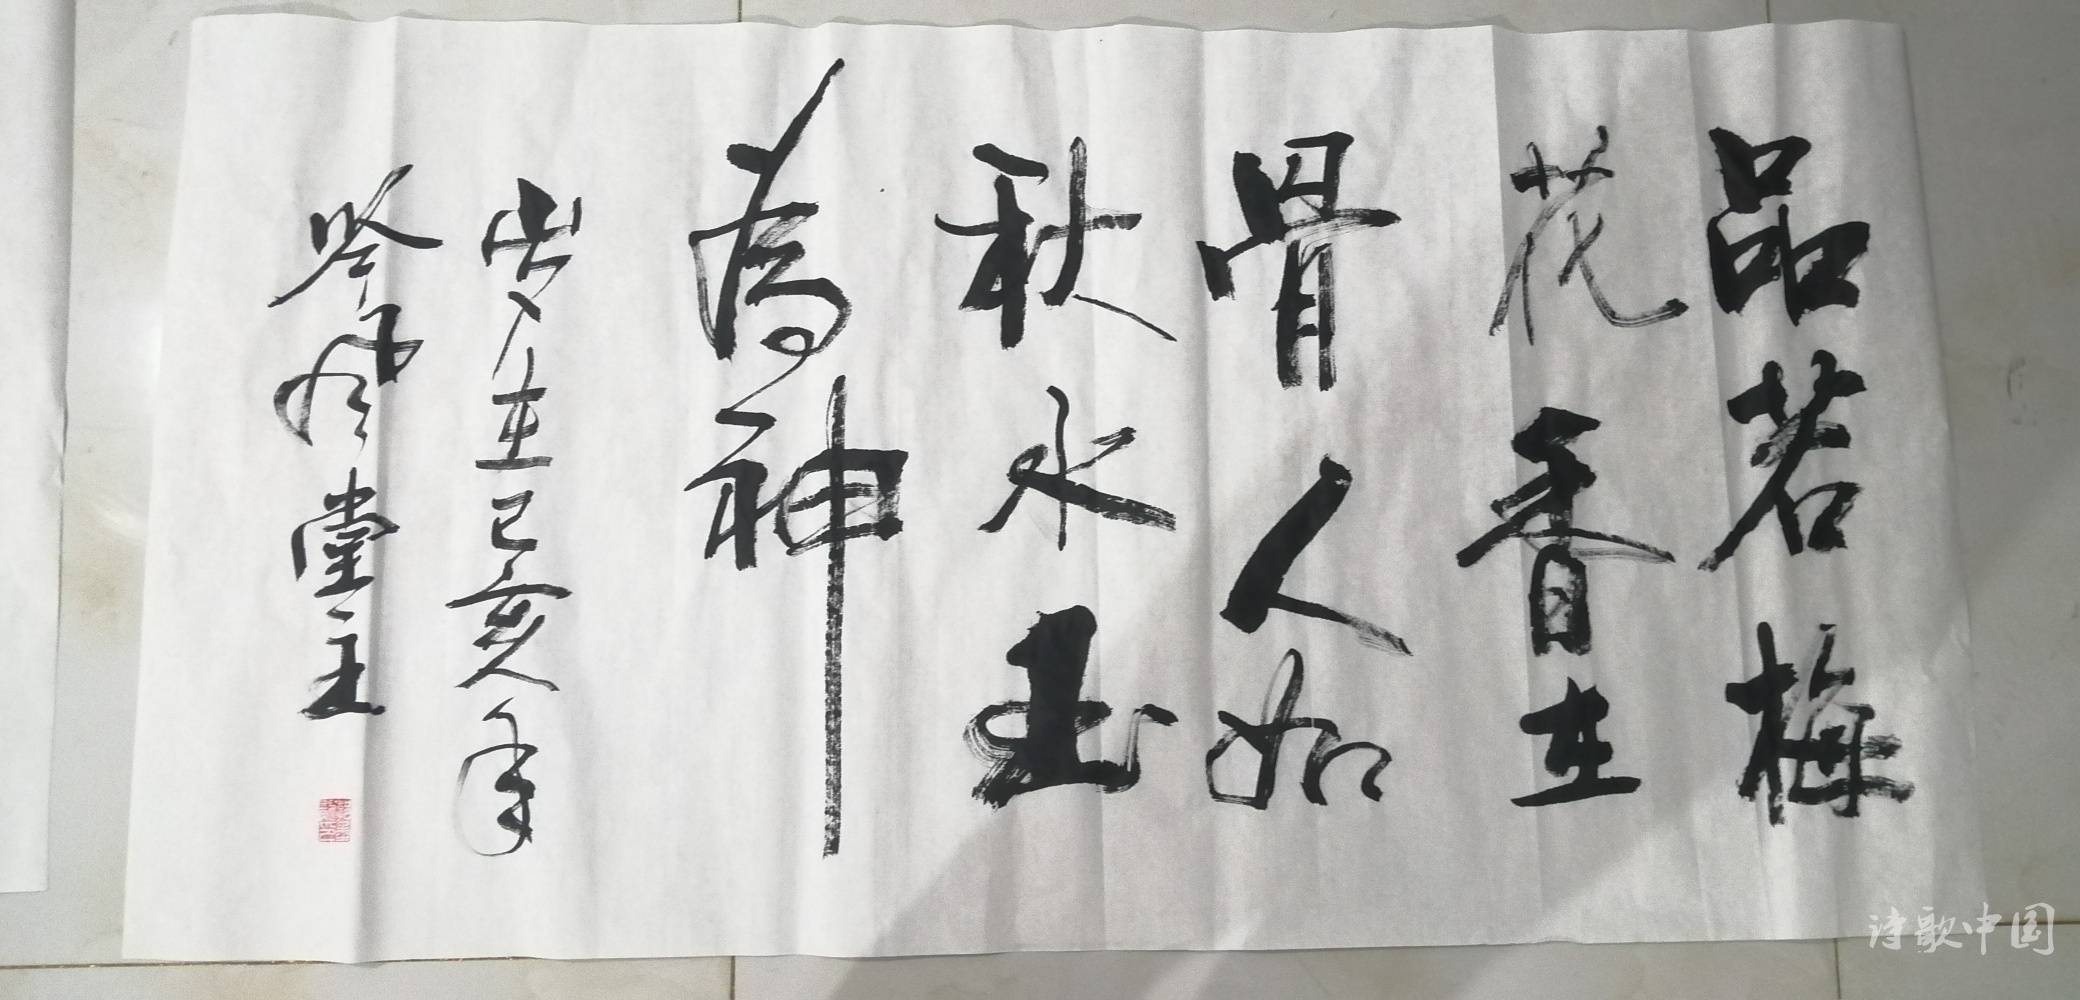 品若梅
花香在
骨人如
秋水玉
為神
岁在己亥年
吟风堂主
诗歌中国